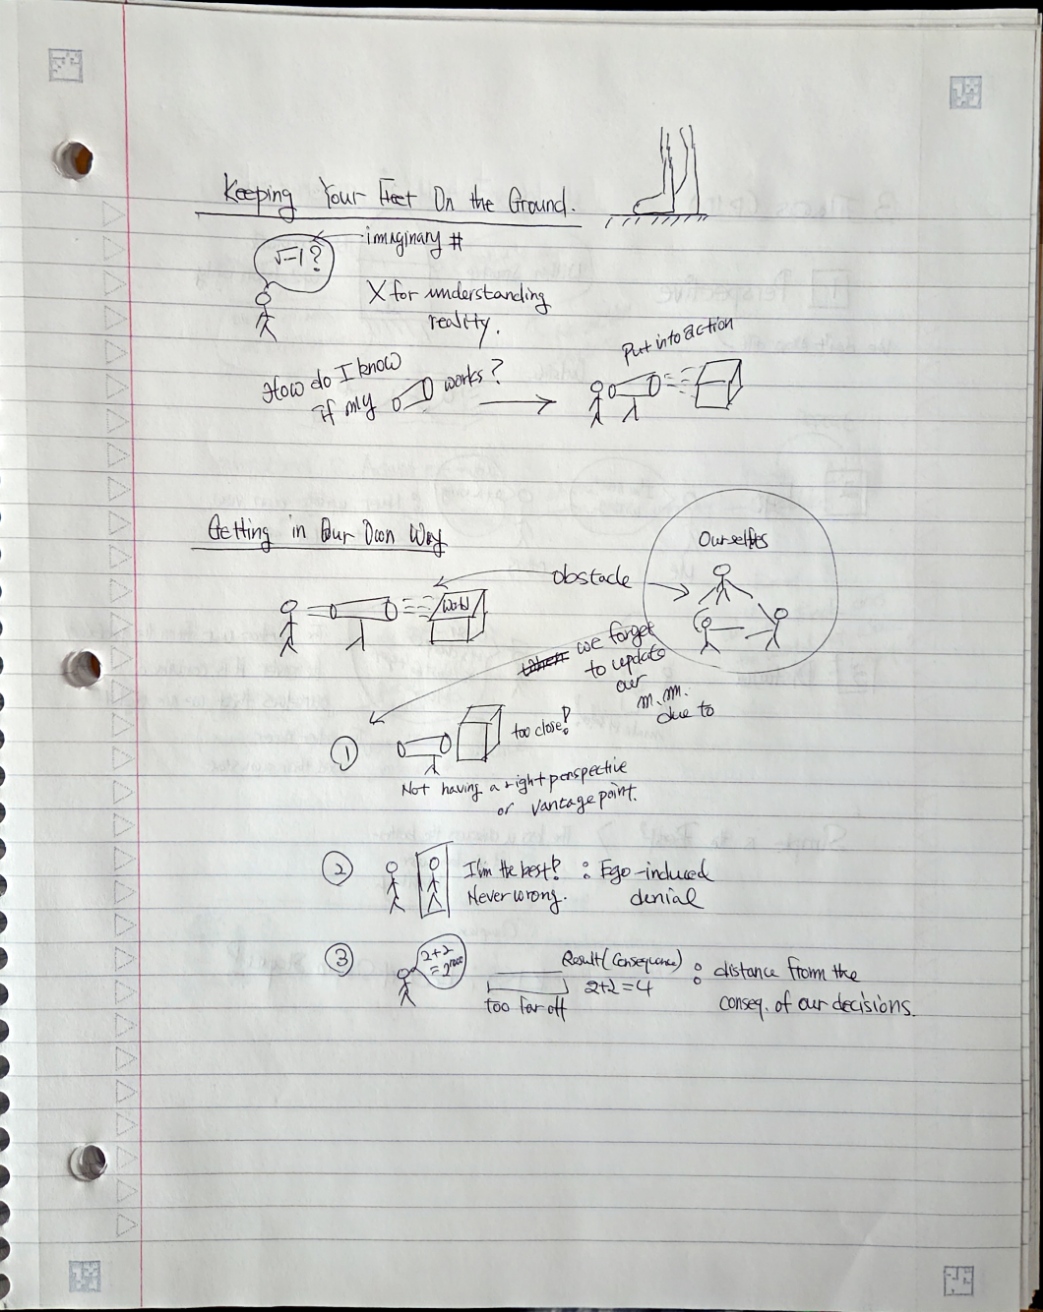 Keeping Your Feet On the Ground.
√-1?
imaginary #
X for understanding
reality.
How do I know
if my works?
Put into action
Getting in Our Own Way
Ourselves
obstacle
World
we forget
to update
our
m.m.
due to
①
too close!
Not having a right perspective
or vantage point.
②
I'm the best! : Ego-induced
Never wrong. denial
③
2+2
Result (Consequence) : distance from the
2+2=4
too far off
conseq. of our decisions.